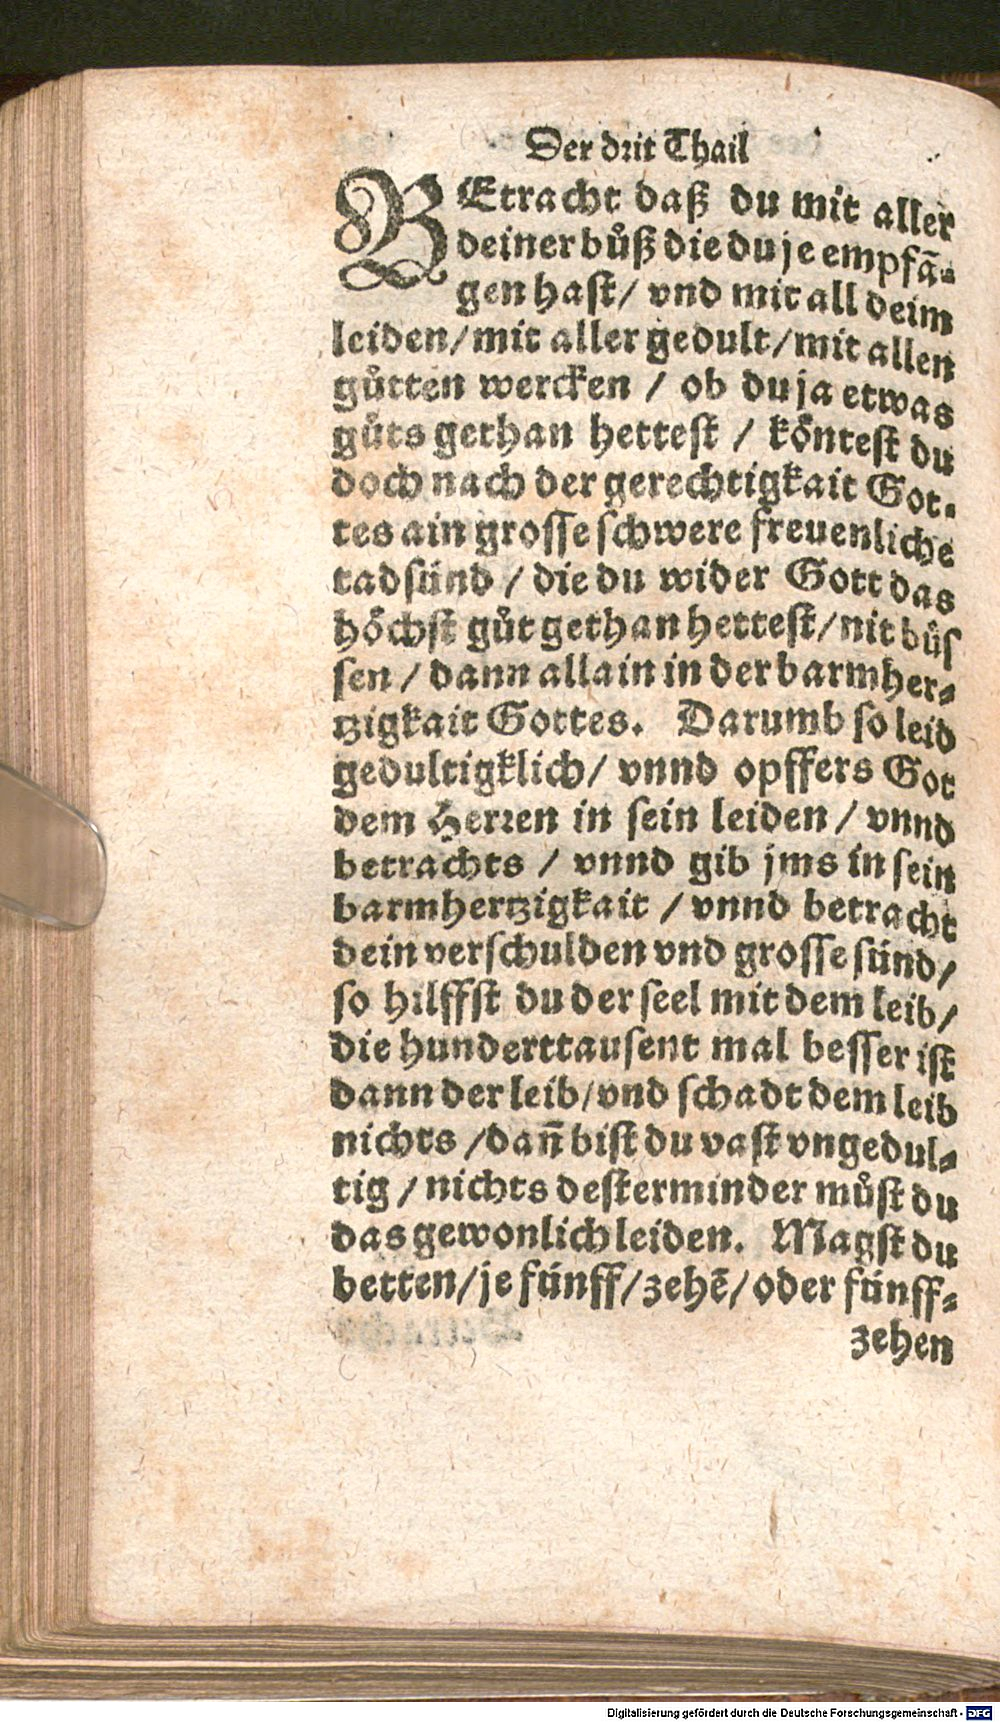 Der drit Thail
BEtracht daß du mit aller
deiner bůß die du je empfā-
gen hast/ vnd mit all deim
leiden/mit aller gedult/mit allen
gůtten wercken / ob du ja etwas
gůts gethan hettest / köntest du
doch nach der gerechtigkait Got-
tes ain grosse schwere freuenliche
tadsünd / die du wider Gott das
höchst gůt gethan hettest/nit bůs
sen / dann allain in der barmher-
tzigkait Gottes. Darumb so leid
gedultigklich/ vnnd opffers Got
dem Herren in sein leiden / vnnd
betrachts / vnnd gib jms in sein
barmhertzigkait / vnnd betracht
dein verschulden vnd grosse sünd/
so hilffst du der seel mit dem leib/
die hunderttausent mal besser ist
dann der leib/vnd schadt dem leib
nichts /dañ bist du vast vngedul-
tig / nichts desterminder můst du
das gewonlich leiden. Magst du
betten/je fünff/zehē/oder fünff-
zehen
Digitalisierung gefördert durch die Deutsche Forschungsgemeinschaft - DFG